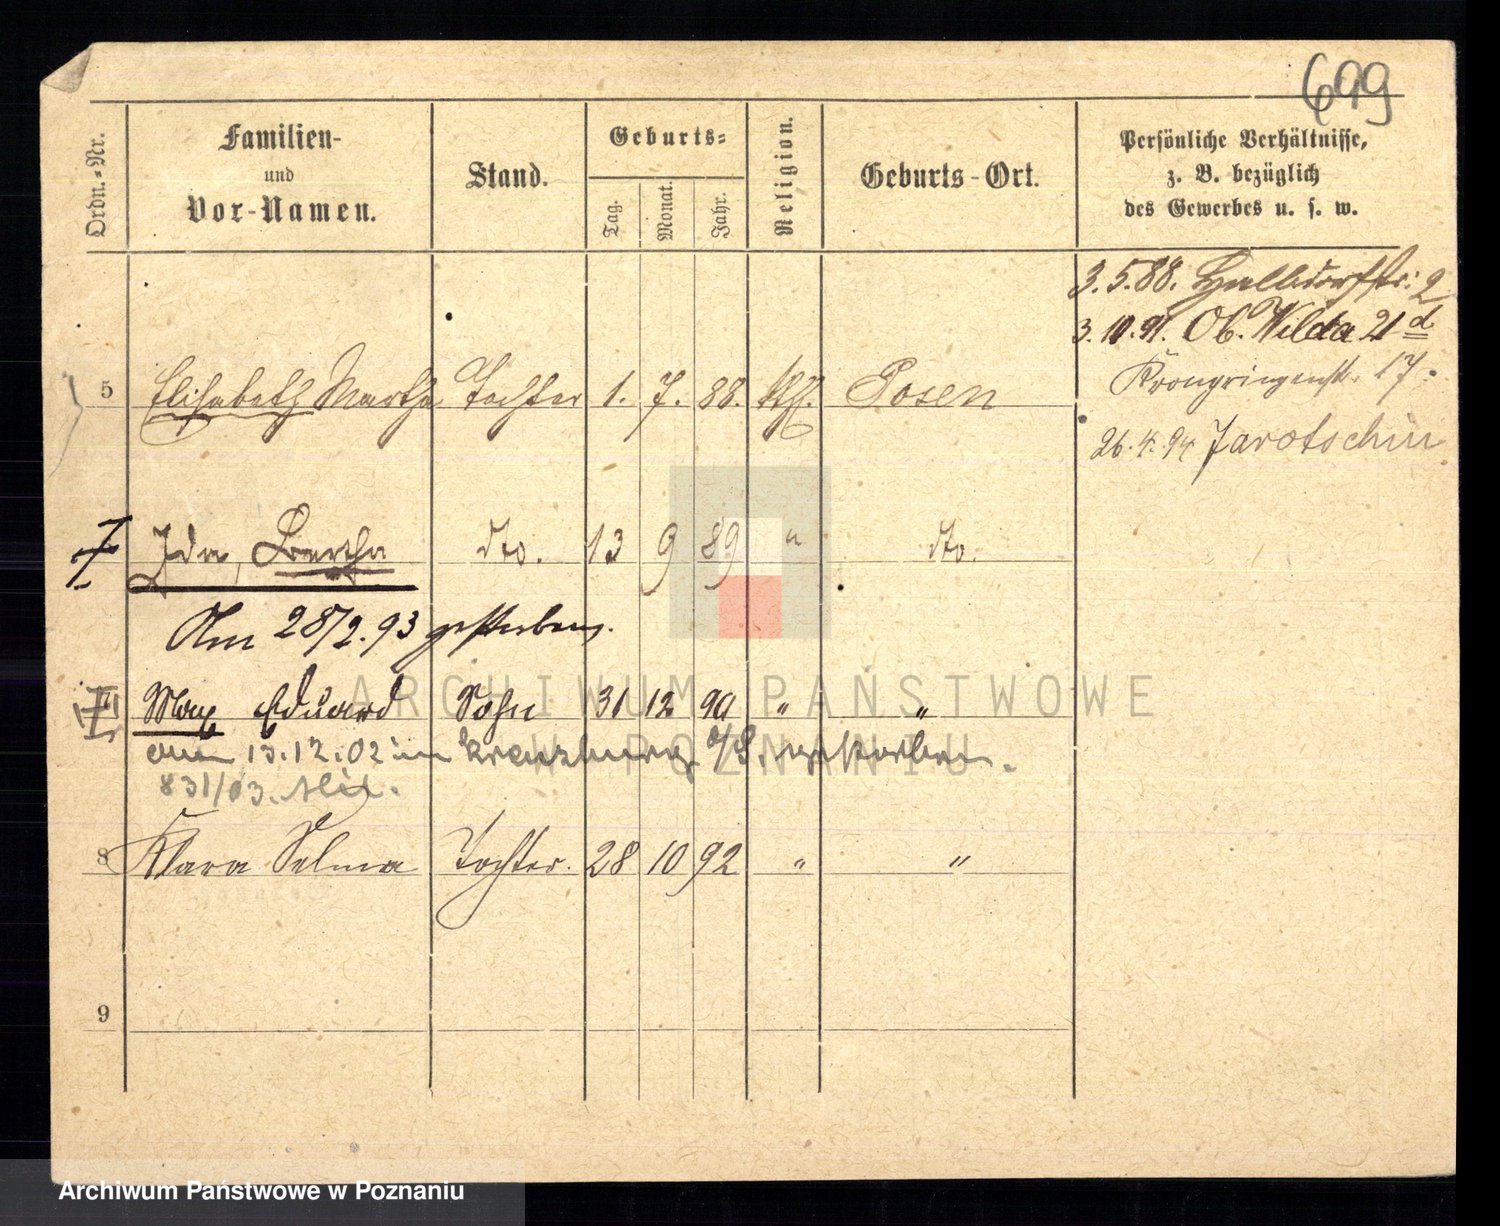 699
Ordn.-Nr.
Familien-
und
Vor-Namen.
Stand.
Geburts-
Tag.
Monat.
Jahr.
Religion.
Geburts-Ort.
Persönliche Verhältnisse,
z. B. bezüglich
des Gewerbes u. s. w.
3.5.88. Halbdorfstr: 2
3.10.91. Ob. Wilda 21 d
Kronprinzenstr. 17.
26.4.94 Jarotschin
5 Elisabeth Martha Tochter 1. 7. 88. kth. Posen
Ida, Bertha dto. 13 9 89 " dto.
Am 28/2.93 gestorben.
Max Eduard Sohn 31 12 90 " "
am 13.12.02 in Kreuzburg O/S. gestorben.
831/03.
8 Klara Selma Tochter. 28 10 92 " "
9
ARCHIWUM PAŃSTWOWE
W POZNANIU
Archiwum Państwowe w Poznaniu